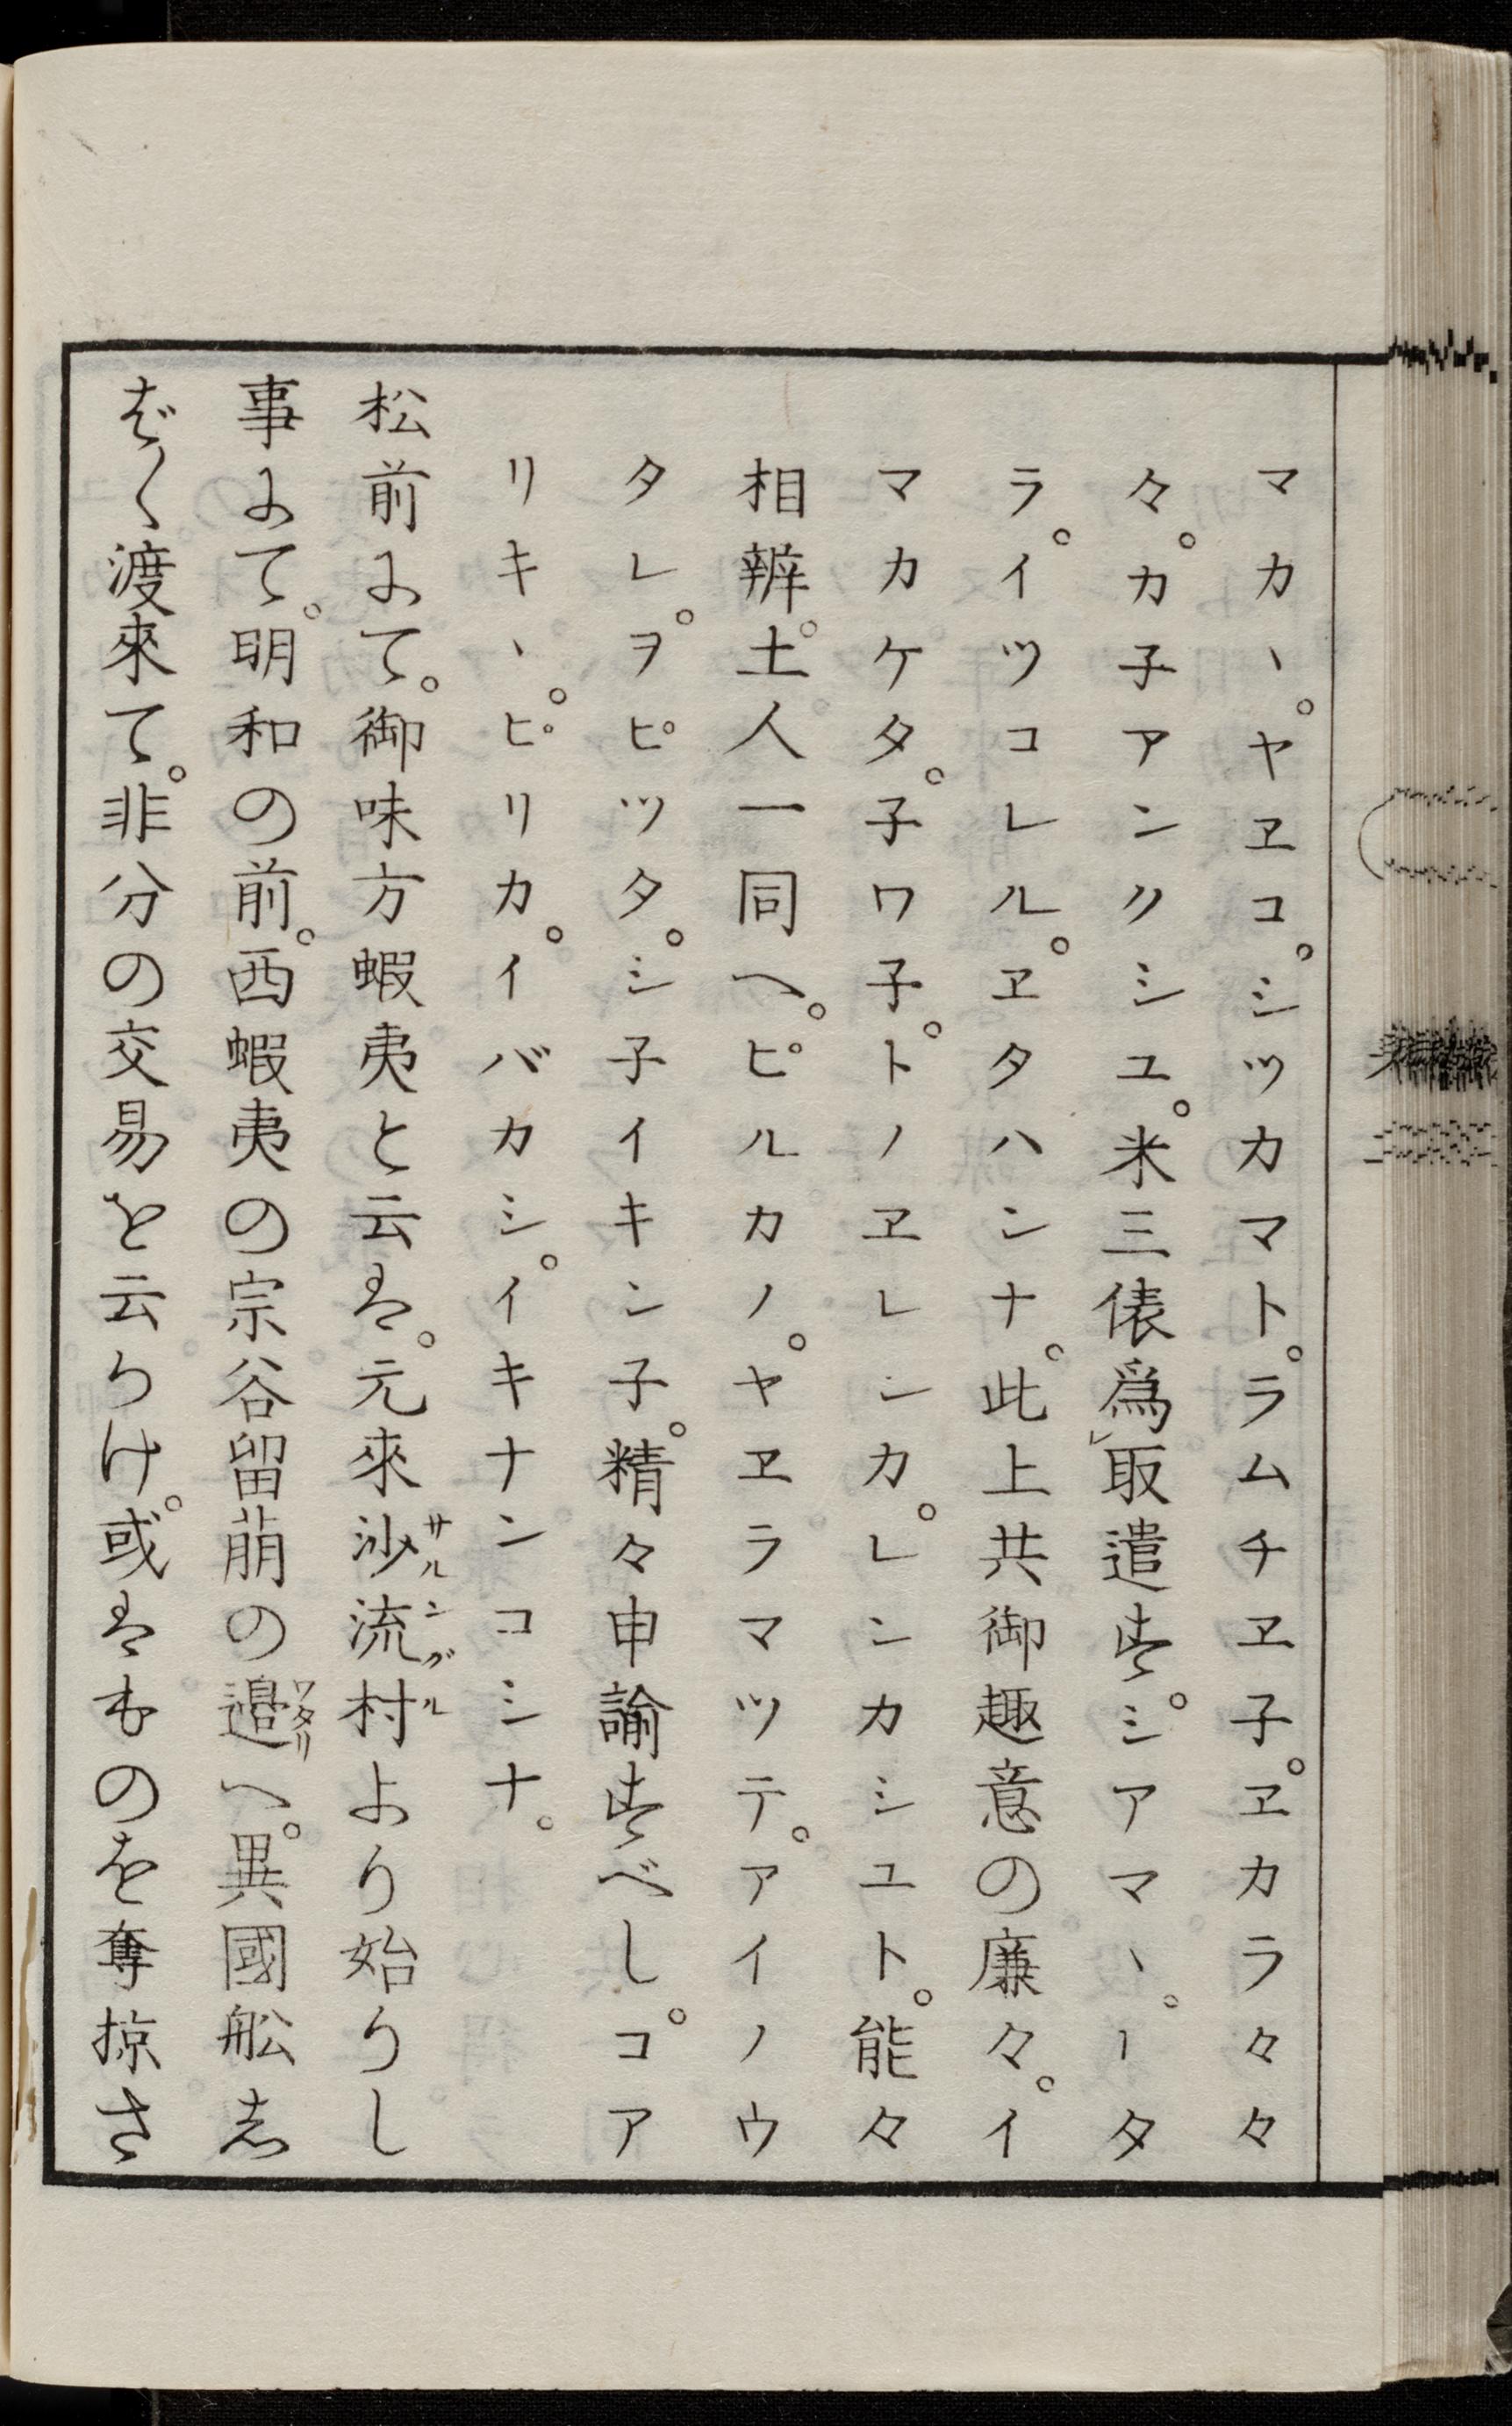 マカヽ。ヤヱコ。シツカマト。ラムチヱ子。ヱカラ々々
々。カ子アンクシユ。米三俵爲㆑取遣す。シアマヽ。ータ
ラ。イツコレル。ヱタハンナ。此上共御趣意の廉々。イ
マカケタ。子ワ子。トノヱレンカ。レンカシユト。能々
相辨。土人一同へ。ピルカノ。ヤヱラマツテ。アイノウ
タレ。ヲピツタ。シ子イキン子。精々申諭すべし。コア
リキヽ。ピリカ。イバカシ。イキナンコシナ。
松前にて。御味方蝦夷と云は。元來沙流村より始りし
事にて。明和の前。西蝦夷の宗谷留萠の邉へ。異國舩志
ば〱渡來て。非分の交易を云りけ。或はものを奪掠さ
サルンクル
ワタリ